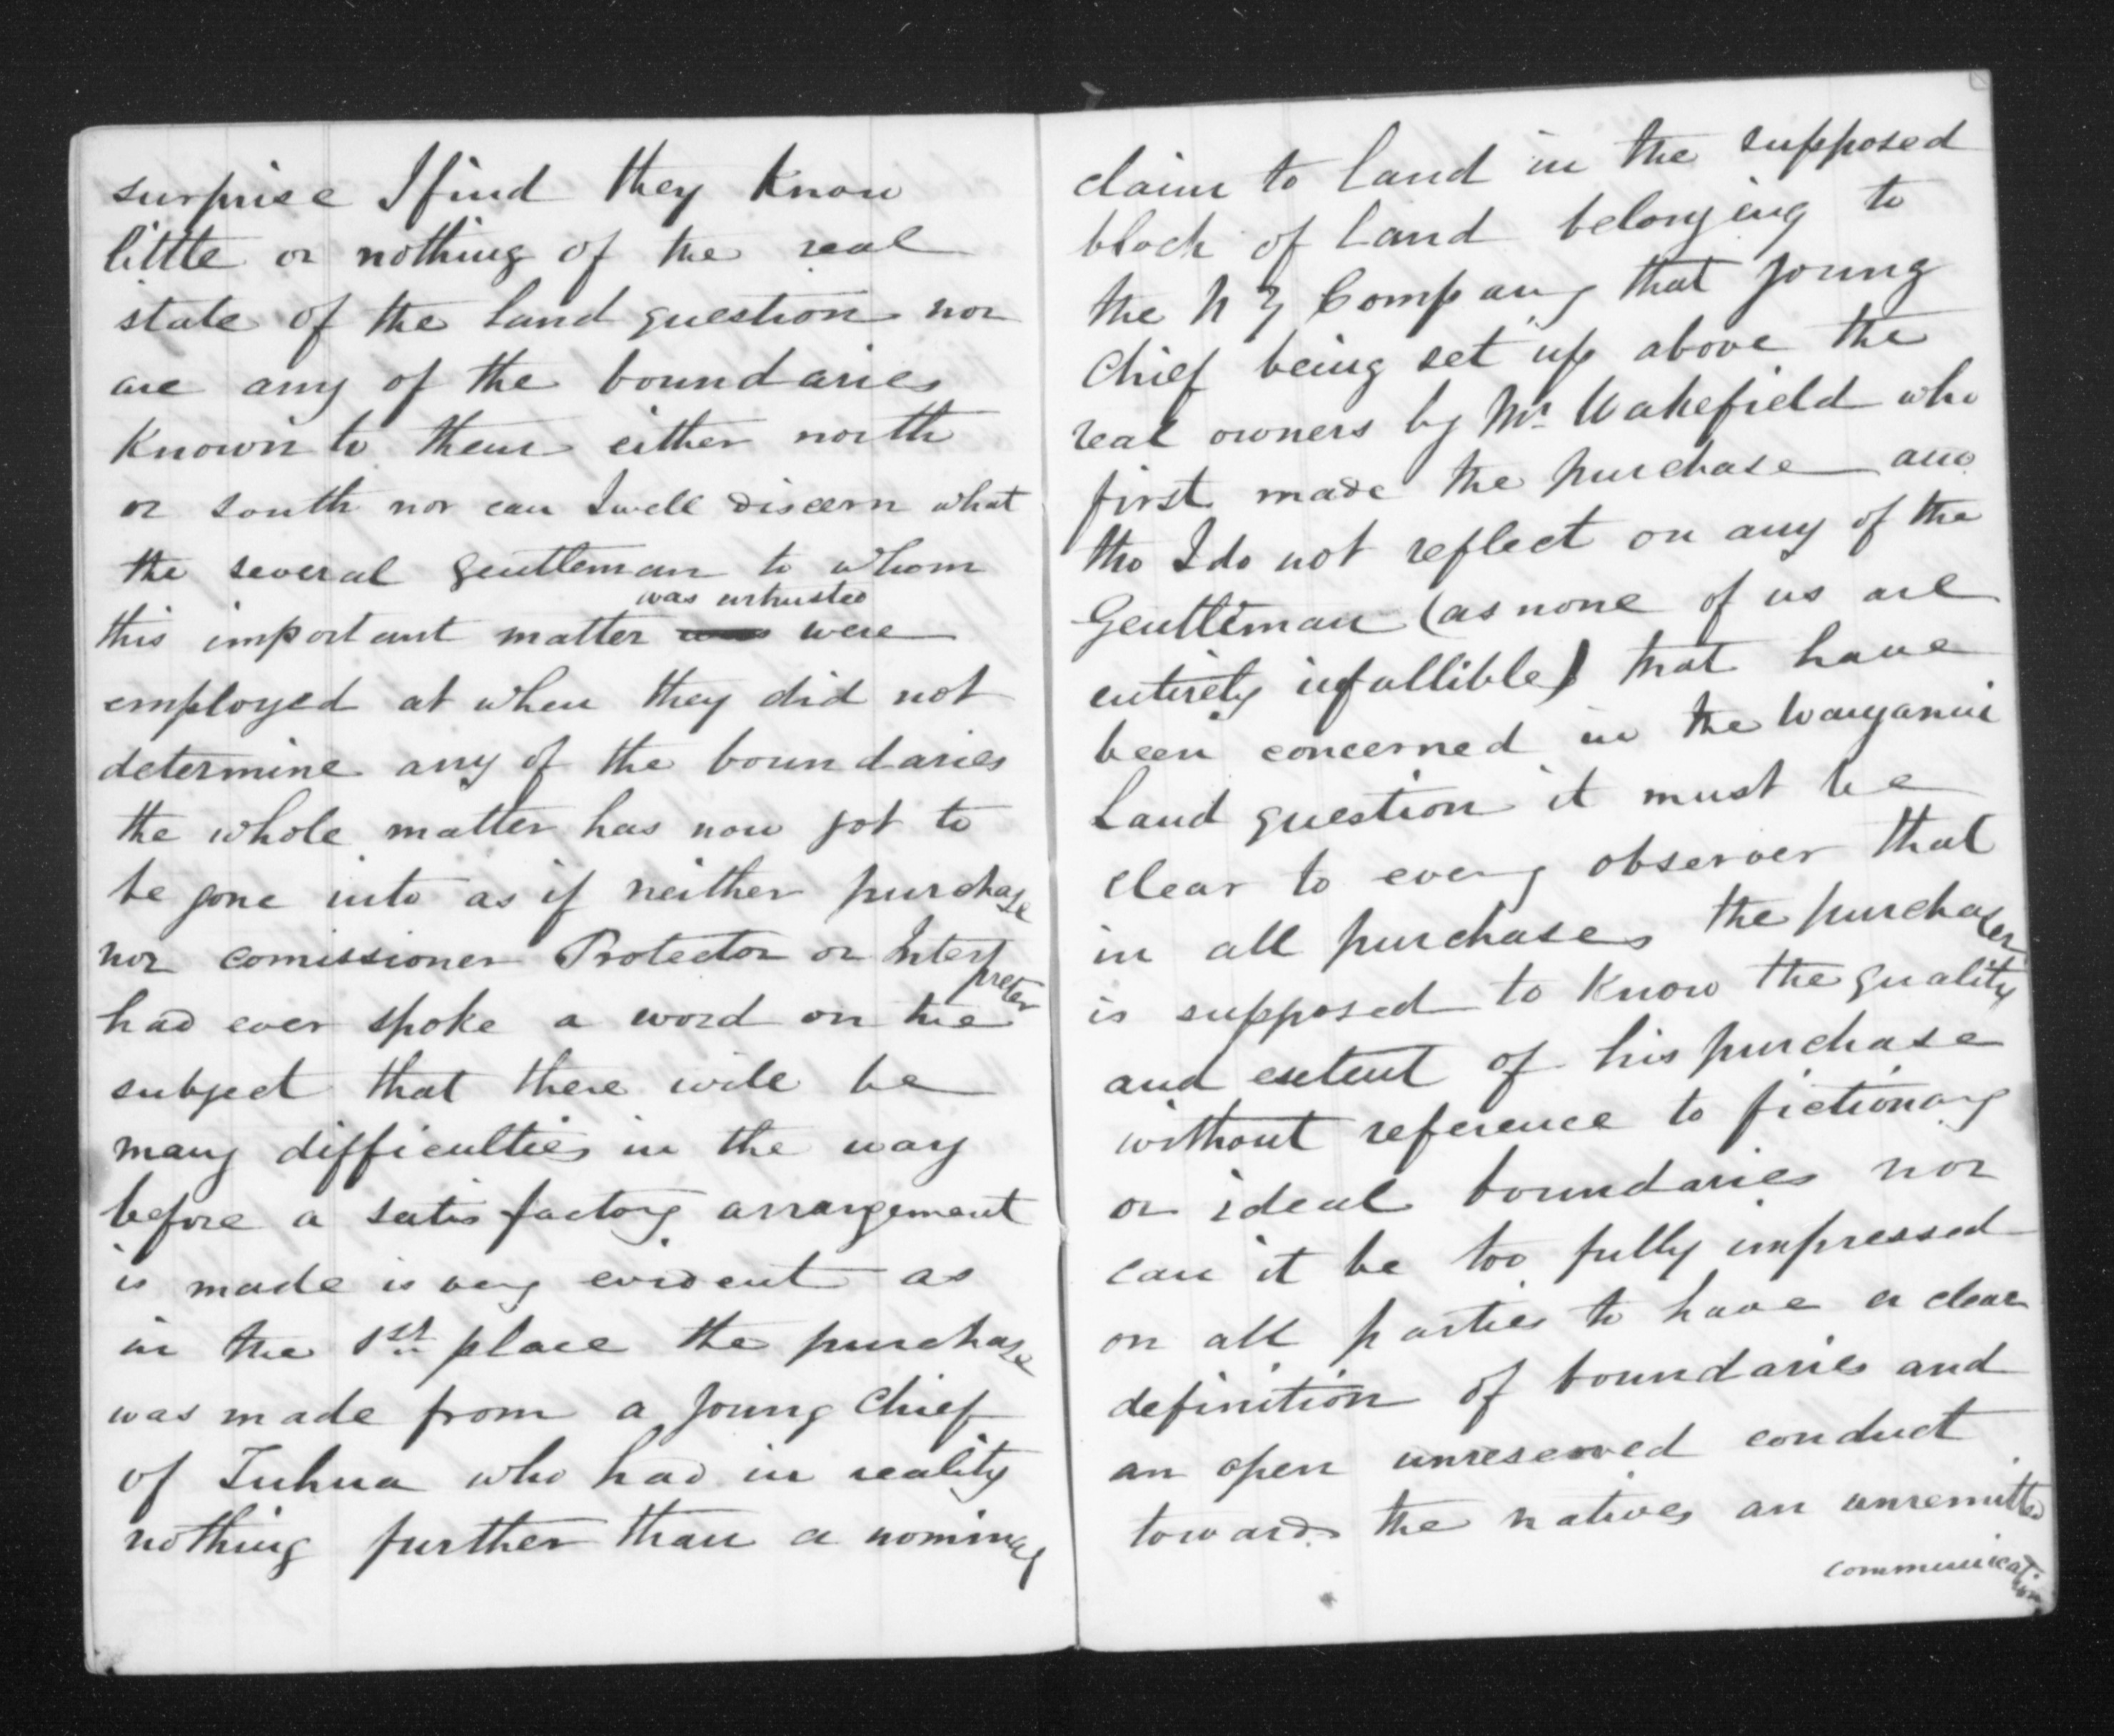 surprise I find they know
little or nothing of the real
state of the land question nor
are any of the boundaries
known to them either north
or south nor can I well discern what
the several gentleman to whom
was intrusted
this important matter were
employed at when they did not
determine any of the boundaries
the whole matter has now got to
be gone into as if neither purchase
nor comissioner Protector or Interpreter
had ever spoke a word on the
subject that there will be
many difficulties in the way
before a satisfactory arrangement
is made is very evident as
in the 1st place the purchase
was made from a young chief
of Tuhua who had in reality
nothing further than a nominal
claim to land in the supposed
block of land belonging to
the N Z Company that young
Chief being set up above the
real owners by Mr Wakefield who
first made the purchase and
tho I do not reflect on any of the
Gentleman (as none of us are
entirely infallible) that have
been concerned in the Wanganui
Land question it must be
clear to every observer that
in all purchases the purchaser
is supposed to know the quality
and extent of his purchase
without reference to fictionary
or ideal boundaries nor
can it be too fully impressed
on all parties to have a clear
definition of boundaries and
an open unreserved conduct
towards the natives an unremitted
communication